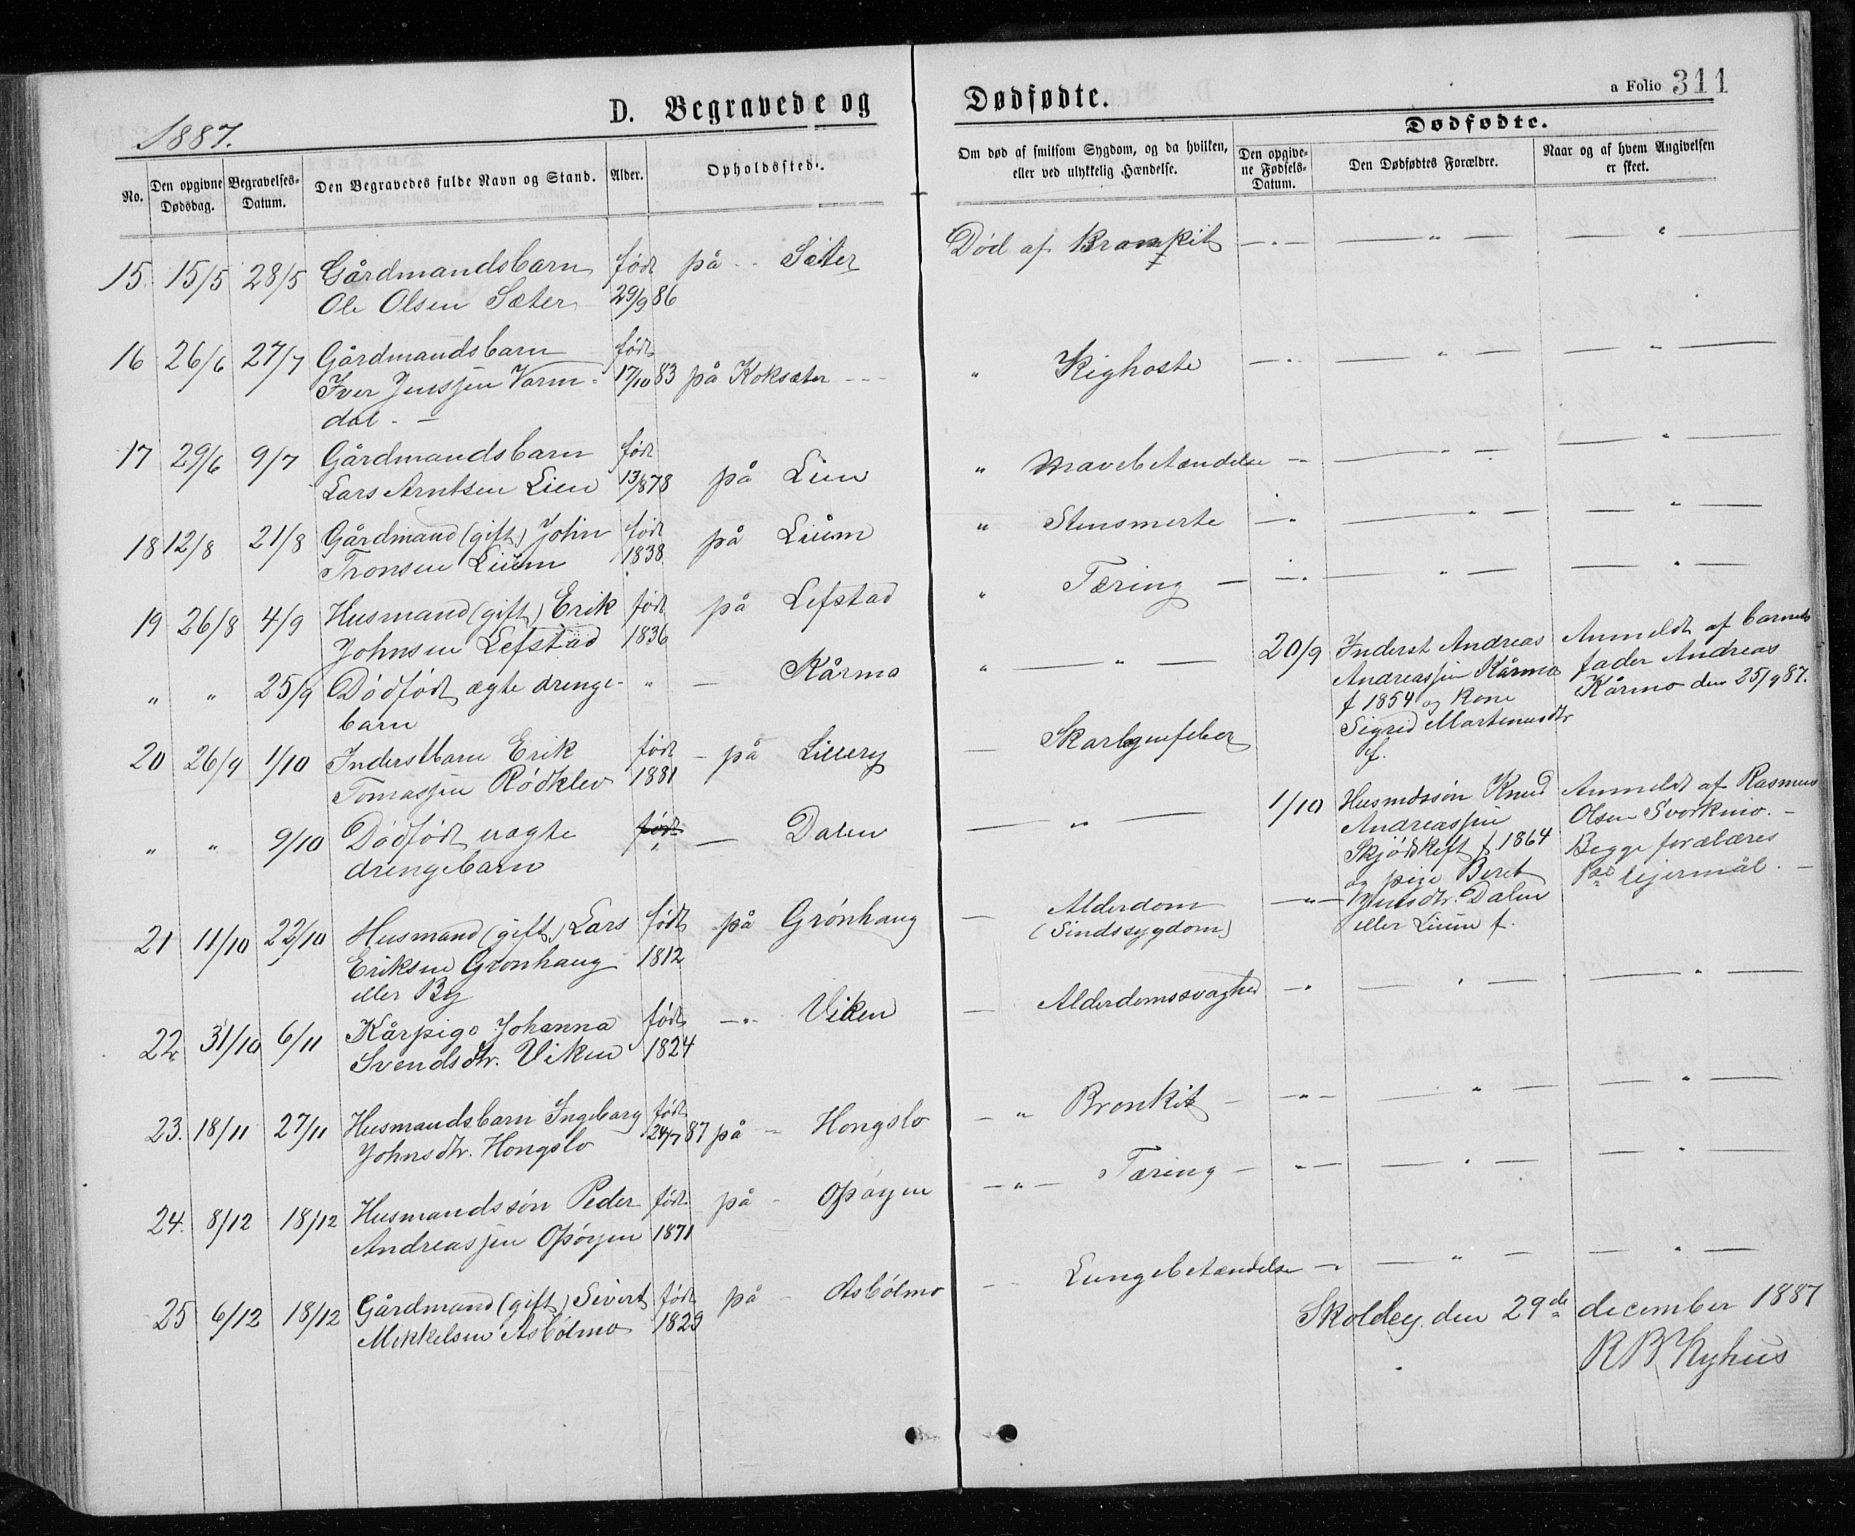 1887.
D. Begravede og Dødfødte.
a Folio 311
No.
Den opgivne Dødsdag.
Begravelses-Datum.
Den Begravedes fulde Navn og Stand.
Alder.
Opholdssted.
Om død af smitsom Sygdom, og da hvilken, eller ved ulykkelig Hændelse.
Dødfødte.
Den opgivne Fødsels-Datum.
Den Dødfødtes Forældre.
Naar og af hvem Angivelsen er skeet.
15. 15/5 28/5 Gårdmandsbarn født på - Sæter Død af Bronkit
Ole Olsen Sæter 29/9 86
16 26/6 27/7 Gårdmandsbarn født " Kighoste
Iver Jenssen Varm- 17/10 83 på Koksæter
dal
17 29/6 9/7 Gårdmandsbarn født " Mavebetændelse
Lars Arntsen Lien 13/8 78 på Lien
18 12/8 21/8 Gårdmand (gift) John født på Lium " Stensmerte
Tronsen Lium 1838
19 26/8 4/9 Husmand (gift) Erik født på Lefstad " Tæring
Johnsen Lefstad 1836
" " 25/9 Dødfødt ægte drenge- " - Kårmo " " 20/9 Inderst Andreas Anmeldt af barnets
barn Andreassen Kårmo fader Andreas
f 1854 og kone Kårmo den 25/9 87.
Sigrid Martinusdtr
f.
20 26/9 1/10 Inderstbarn Erik født - på Lillery - Skarlagensfeber
Tomassen Rødklev 1881
" " 9/10 Dødfødt uægte født - Dalen " 1/10 Husmdssøn Knud Anmeldt af Rasmus
drengebarn Andreassen Olsen Svorkmo.
Skjødskift f 1864 Begge forælæres
og pige Beret lejermål.
Dalen
eller Lium f.
21 11/10 22/10 Husmand (gift) Lars født på Grønhaug - Alderdom
Eriksen Grønhaug 1812 (Sindssygdom)
eller By
22 31/10 6/11 Kårpige Johanna født - Viken - Alderdomssvaghed
Svendsdtr. Viken 1824
23. 18/11 27/11 Husmandsbarn Ingeborg født på - Hongslo - " Bronkit
Johnsdtr. Hongslo 24/7 87
24. 8/12 18/12 Husmandssøn Peder født på - Opøyen - " - Tæring
Andreassen Opøyen 1871
25 6/12 18/12 Gårdmand (gift) Sivert født på - Asbólmo - Lungebetændelse
Mikkelsen Asbólmo 1829
den 29de december 1887